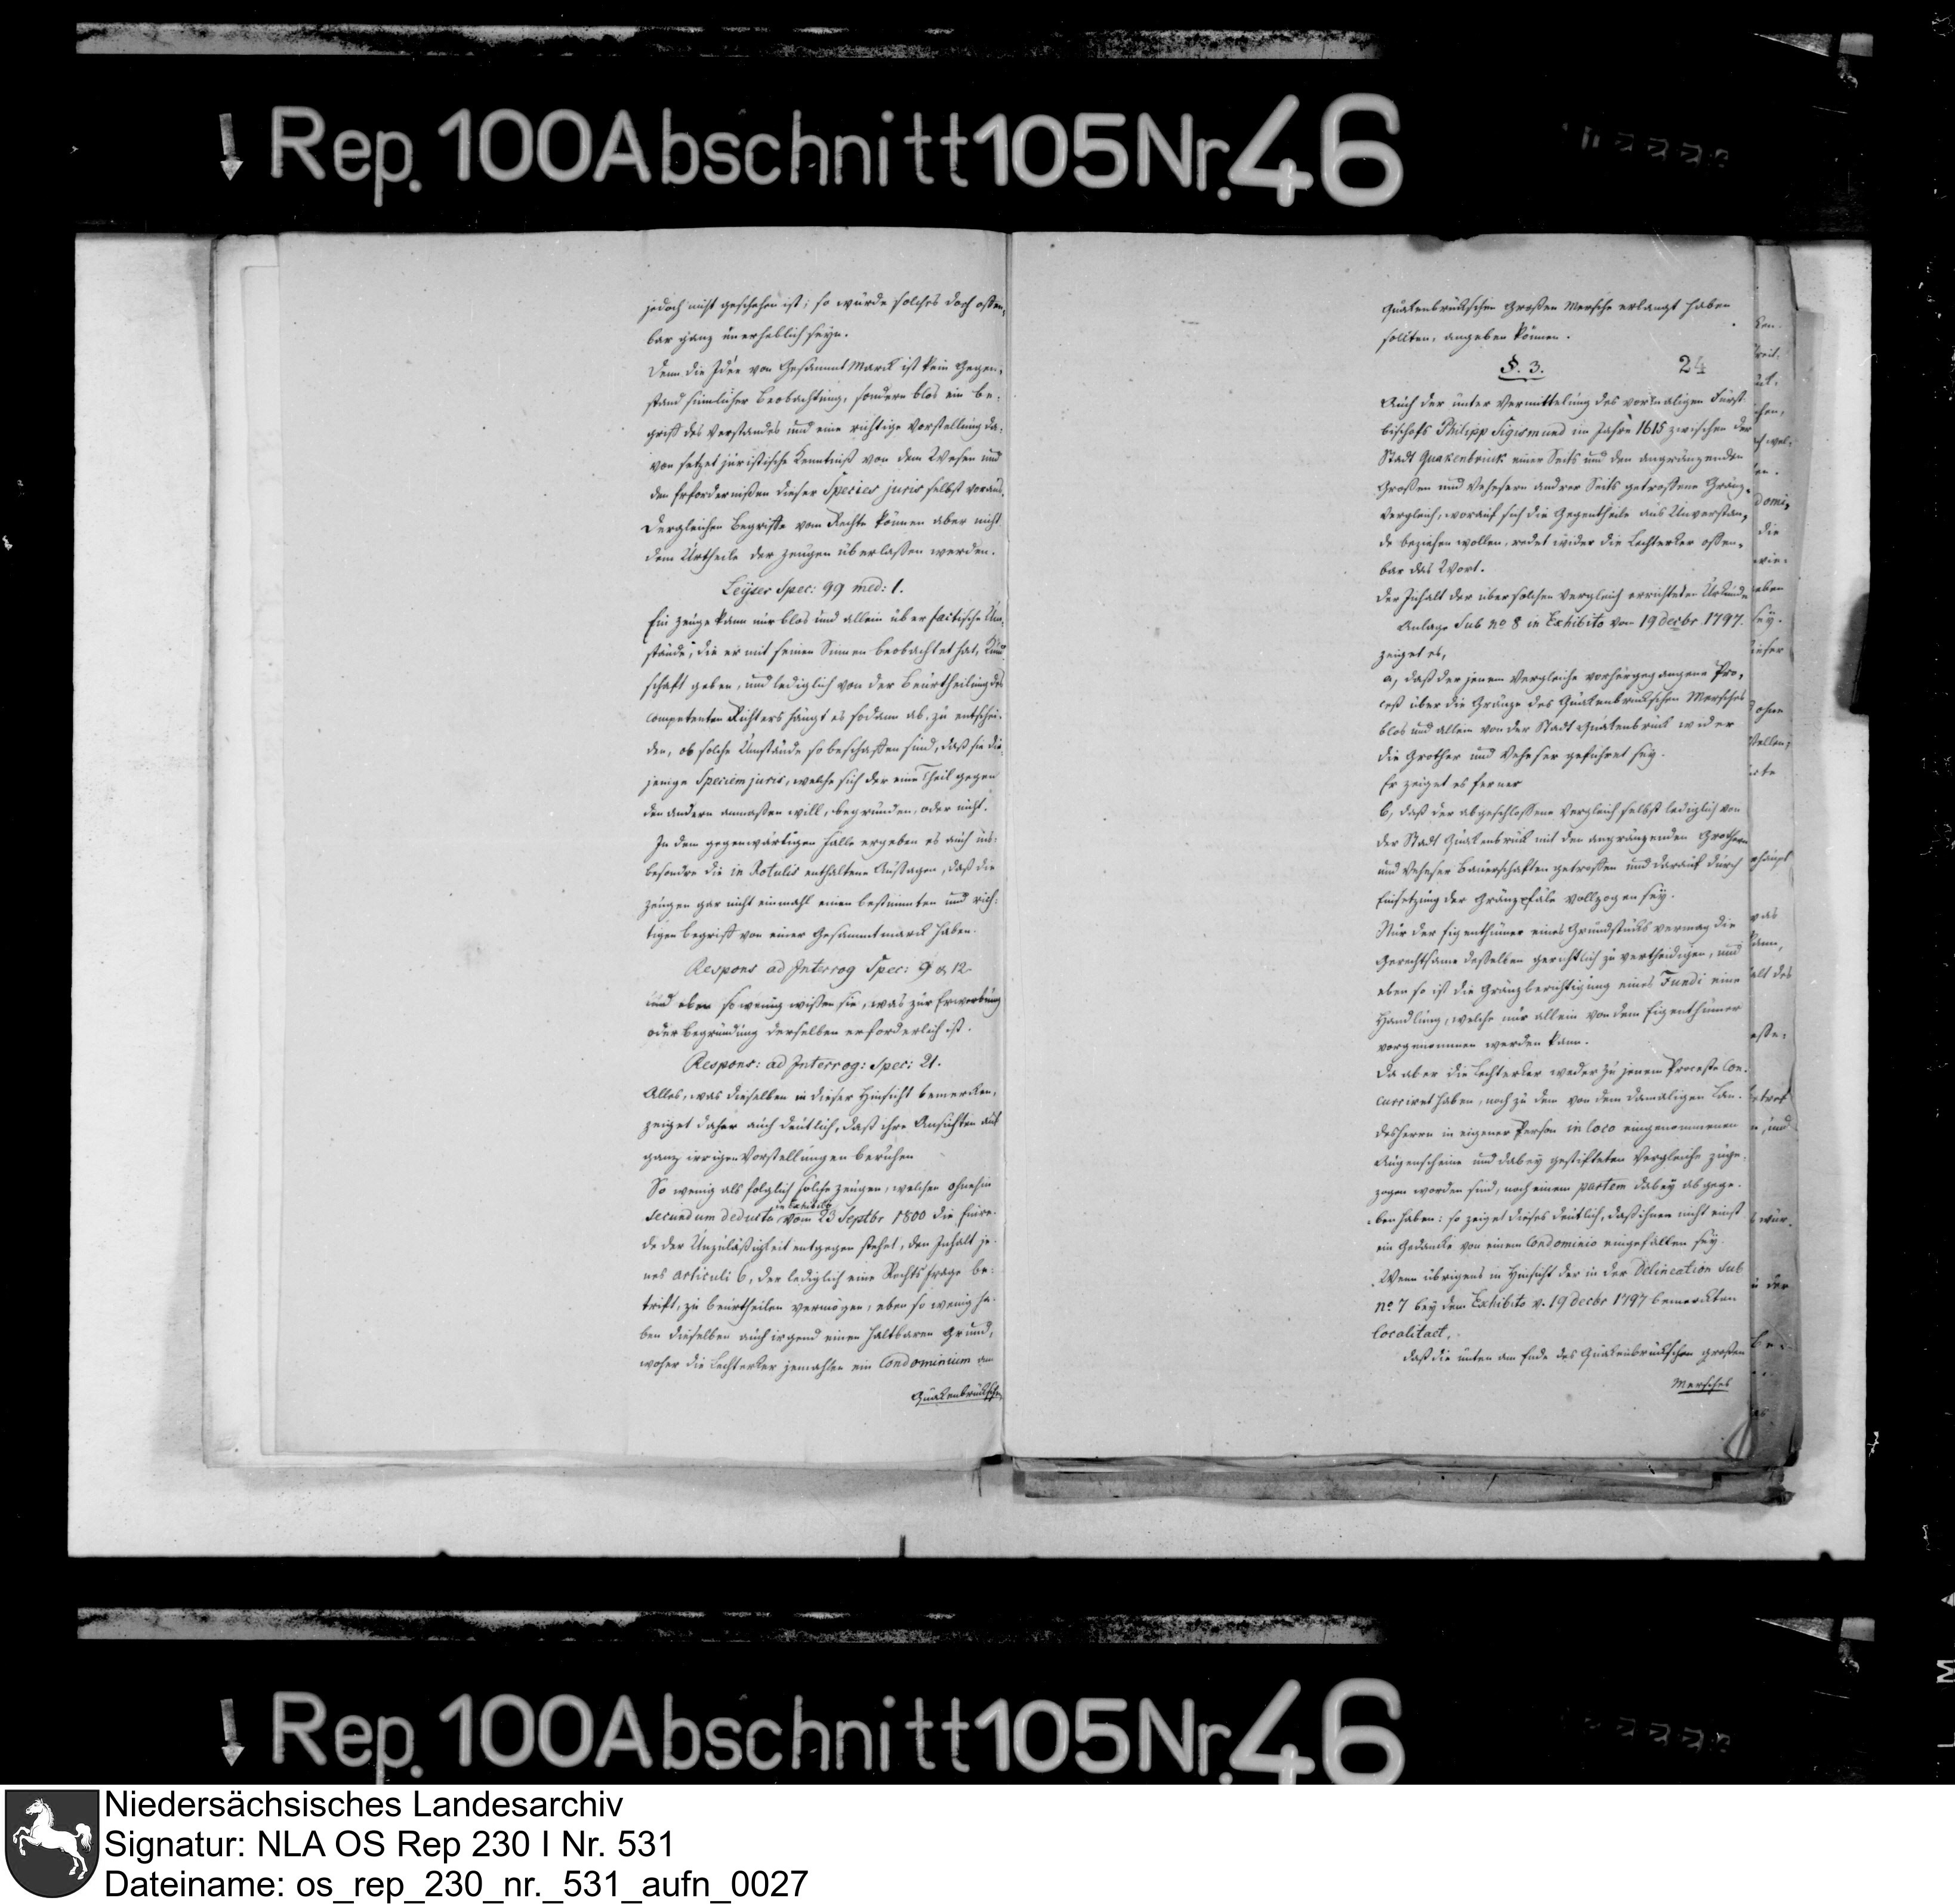 Rep. 100 Abschnitt 105 Nr. 46
jedoch nicht geschehen ist; so würde solches doch offen,
bar ganz unerheblich seyn.
Denn die Idée von Gesammt Marck ist kein Gegen,
stand sinnlicher Beobachtung, sondern blos ein Be,
griff des Verstandes und eine richtige Vorstellung da,
von setzet juristische Kenntniß von dem Wesen und
den Erfordernißen dieser Species juris selbst voraus.
Dergleichen Begriffe vom Rechte können aber nicht
dem Urtheile der Zeugen überlaßen werden.
Leÿser Spec: 99 med: 1.
Ein Zeuge kann nur blos und allein über factische Um,
stände, die er mit seinen Sinnen beobachtet hat, Kund
schaft geben, und lediglich von der Beurtheilung des
competenten Richters hängt es sodann ab, zu entschei,
den, ob solche Umstände so beschaffen sind, daß sie die,
jenige Speciem juris, welche sich der eine Theil gegen
den andern anmaßen will, begründen, oder nicht.
In dem gegenwärtigen Falle ergeben es auch ins,
besondre die in Rotulis enthaltene Aussagen, daß die
Zeugen gar nicht einmahl einen bestimmten und rich,
tigen Begriff von einer Gesammtmarck haben.
Respons ad Interrog Spec: 9 & 12
und eben so wenig wißen sie, was zur Erwerbung
oder Begründung derselben erforderlich ist.
Respons: ad Interrog: Spec: 21.
Alles, was dieselben in dieser Hinsicht bemercken,
zeiget daher auch deutlich, daß ihre Ansichten auf
ganz irrigen Vorstellungen beruhen
So wenig als folglich solche Zeugen, welchen ohnehin
secundum deducta in Exhibito vom 23 Septbr 1800 die Einre,
de der Unzuläßigkeit entgegen stehet, den Inhalt je,
nes articuli 6, der lediglich eine Rechtsfrage be,
trift, zu beurtheilen vermögen, eben so wenig ha,
ben dieselben auch irgend einen haltbaren Grund,
woher die Lechterker jemahlen ein Condominium am
Quakenbrückschen
Quakenbrückschen Großen Mersche erlangt haben
sollten, angeben können.
§. 3.
24
Auch der unter Vermittelung des vormaligen Fürst
bischofs Philipp Sigismund im Jahre 1615 zwischen der
Stadt Quakenbrück einer Seits und den angränzenden
Großen und Vehesern andrer Seits getroffene Gränz,
Vergleich, worauf sich die Gegentheile aus Unverstan,
de beziehen wollen, redet wider die Lechterker offen,
bar das Wort.
Der Inhalt der über solchen Vergleich errichteten Urkunde
Anlage Sub no 8 in Exhibito vom 19 decbr 1797.
zeiget es,
a, daß der jenem Vergleiche vorhergegangene Pro,
ceß über die Gränze des Quakenbrückschen Mersches
blos und allein von der Stadt Quakenbrück wider
die Grother und Veheser geführet sey.
Er zeiget es ferner
b, daß der abgeschloßene Vergleich selbst lediglich von
der Stadt Quakenbrück mit den angränzenden Grothern
und Veheser Bauerschaften getroffen und darauf durch
Einsetzung der Gränzpfäle vollzogen sey.
Nur der Eigenthümer eines Grundstücks vermag die
Gerechtsame deßelben gerichtlich zu vertheidigen, und
eben so ist die Gränzberichtigung eines Fundi eine
Handlung, welche nur allein von dem Eigenthümer
vorgenommen werden kann.
Da aber die Lechterker weder zu jenem Proceße con,
curriret haben, noch zu dem von dem damaligen Lan,
desherrn in eigener Person in loco eingenommenen
Augenscheine und dabey gestifteten Vergleiche zuge,
zogen worden sind, noch einem partem dabey abgege,
ben haben: so zeiget dieses deutlich, daß ihnen nicht einst
ein Gedancke von einem Condominio eingefallen sey.
Wenn übrigens in Hinsicht der in der Delineation sub
no 7 bey dem Exhibito v. 19 decbr 1797 bemerckten
Localitaet,
daß die unten am Ende des Quakenbrückschen großen
Mersches
Rep. 100 Abschnitt 105 Nr. 46
Niedersächsisches Landesarchiv
Signatur: NLA OS Rep 230 I Nr. 531
Dateiname: os_rep_230_nr._531_aufn_0027